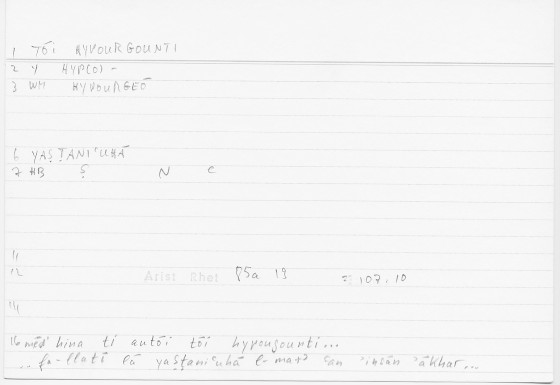 1 TŌI HYPOURGOUNTI
2 Y HYP(O) -
3 WM HYPOURGEŌ
6 YAṢṬANIʿUHĀ
7 HB Ṣ N ʿ
11
12 Arist Rhet 85a 19 = 107,10
14
16 mēd' hina ti autōi tōi hypourgounti...
.. fa-llatī lā yaṣṭaniʿuhā l-marʾ ʾinsān ʾākhar...